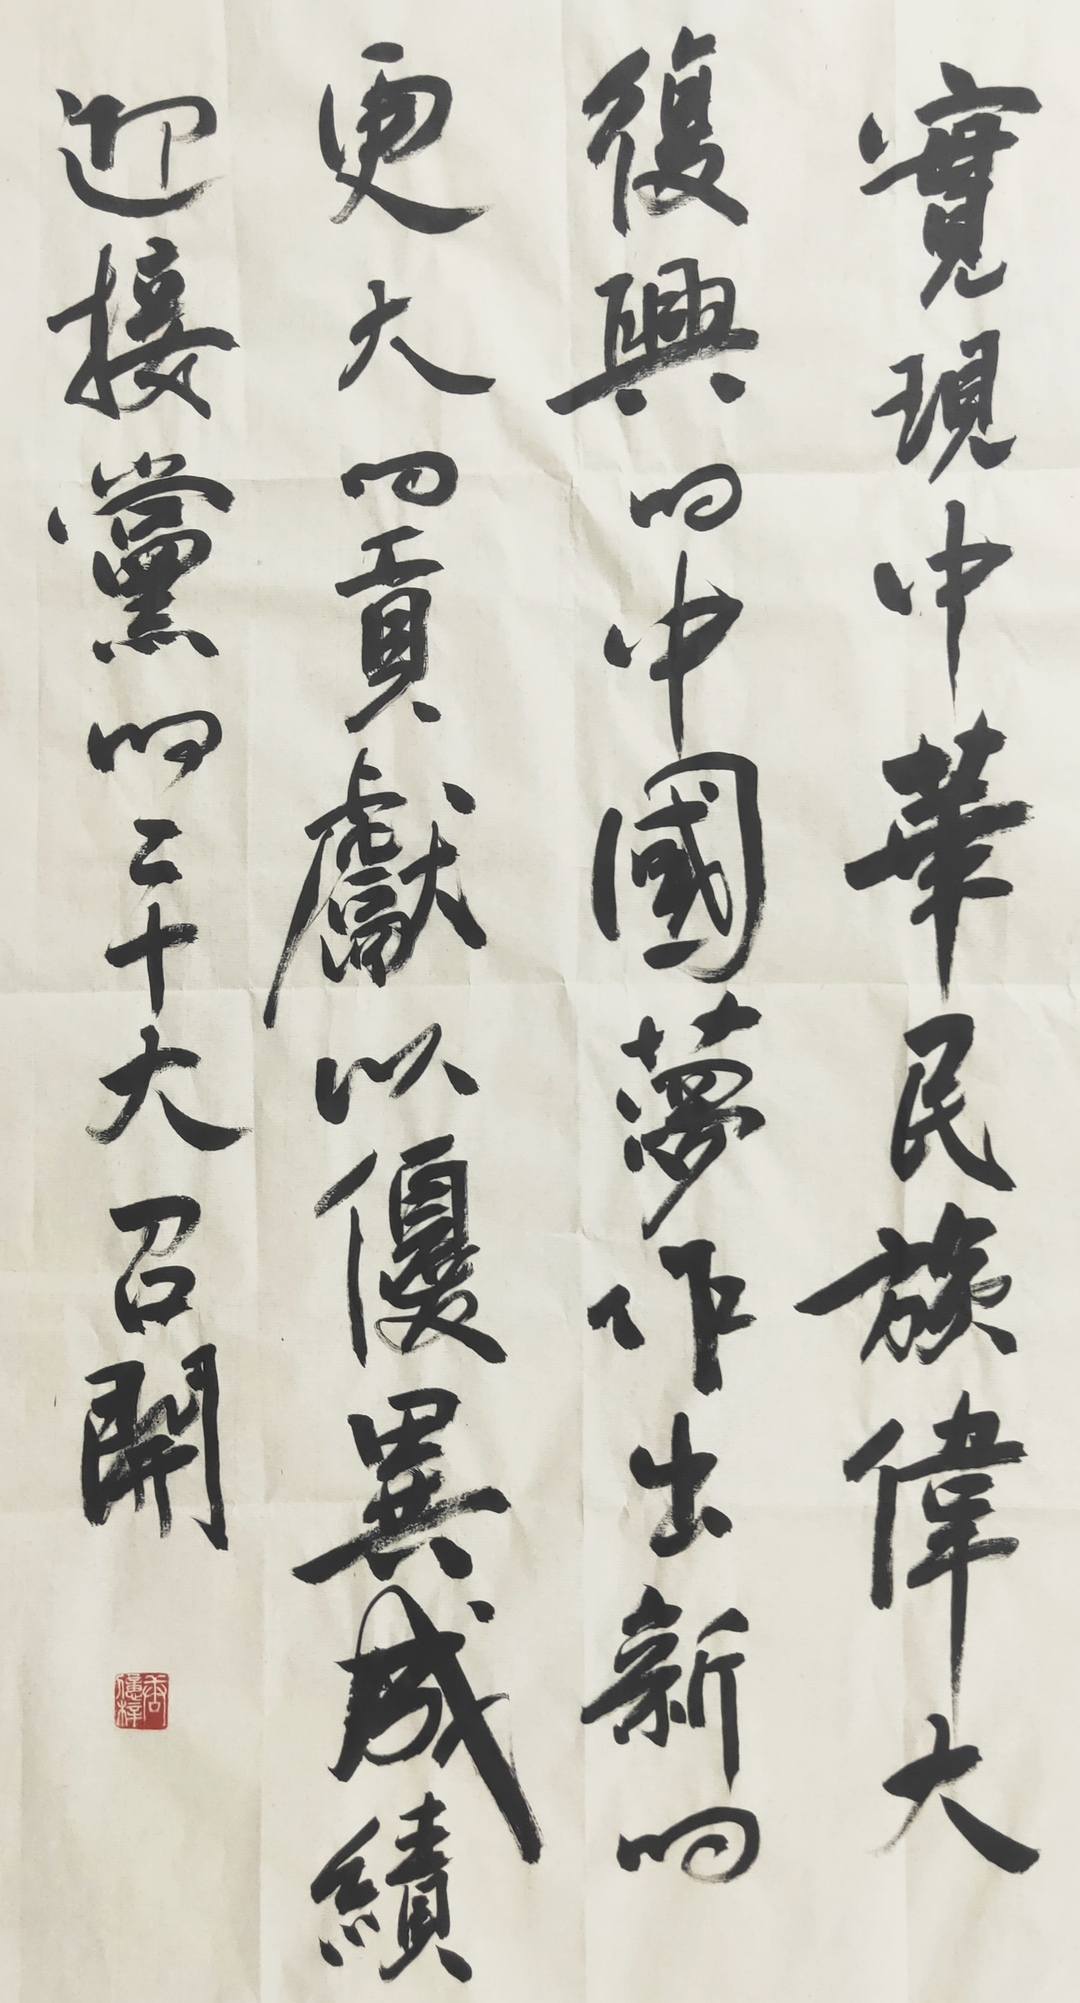 實現中華民族偉大
復興的中國夢作出新的
更大的貢獻以優異成績
迎接黨的二十大召開